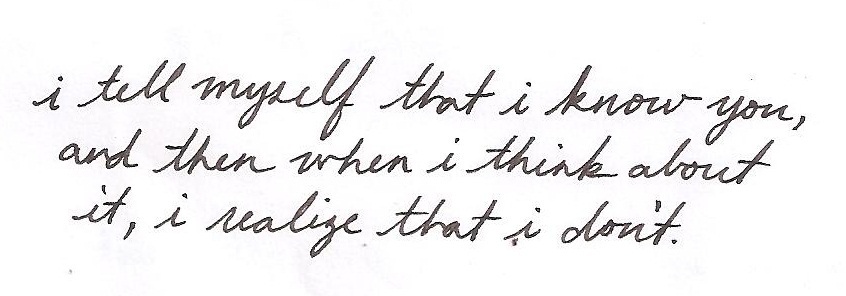 i tell myself that i know you,
and then when i think about
it, i realize that i don't.